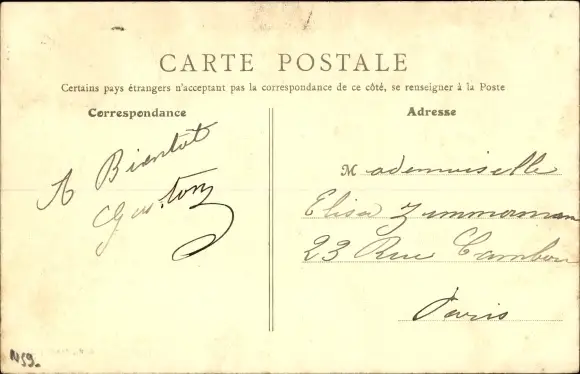 CARTE POSTALE
Certains pays étrangers n'acceptant pas la correspondance de ce côté, se renseigner à la Poste
Correspondance
A Bientot
Gaston
Adresse
Mademoiselle
Elisa Zimmerman
23 Rue Cambon
Paris
N59.